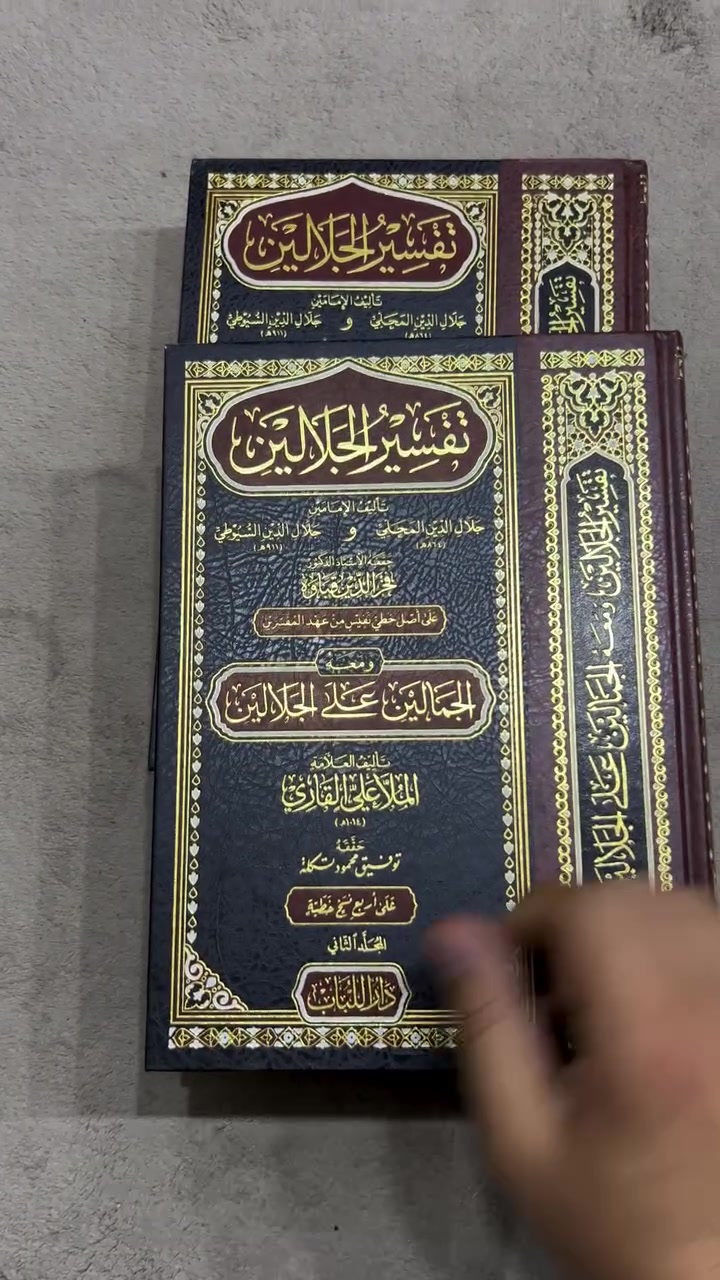 تَفْسِيرُ الجَلَالَيْنِ
تَأليفُ الإمَامَيْنِ
جَلَال الدِّين المَحَلِّيّ و جَلَال الدِّين السُّيُوطِيّ
(٨٦٤هـ) (٩١١هـ)
تَفْسِيرُ
تَفْسِيرُ الجَلَالَيْنِ
تَأليفُ الإمَامَيْنِ
جَلَال الدِّين المَحَلِّيّ و جَلَال الدِّين السُّيُوطِيّ
(٨٦٤هـ) (٩١١هـ)
حَقَّقَهُ الأستاذ الدكتور
فَخْرُ الدِّين قَبَاوَة
عَلَى أصْل خَطِّيّ نَفِيس مِنْ عَهْد المُفَسِّرَيْن
وَمَعَهُ
الجَمَالَيْن عَلَى الجَلَالَيْن
تَأليفُ العَلَّامَة
المُلَّا عَلِيّ القَارِي
(١٠١٤هـ)
حَقَّقَهُ
توفيق محمود تكلة
عَلَى أرْبَع نُسَخ خَطِّيَّة
المُجَلَّد الثَّاني
دَارُ اللُّبَاب
تَفْسِيرُ الجَلَالَيْنِ وَمَعَهُ الجَمَالَيْن عَلَى الجَلَالَيْن